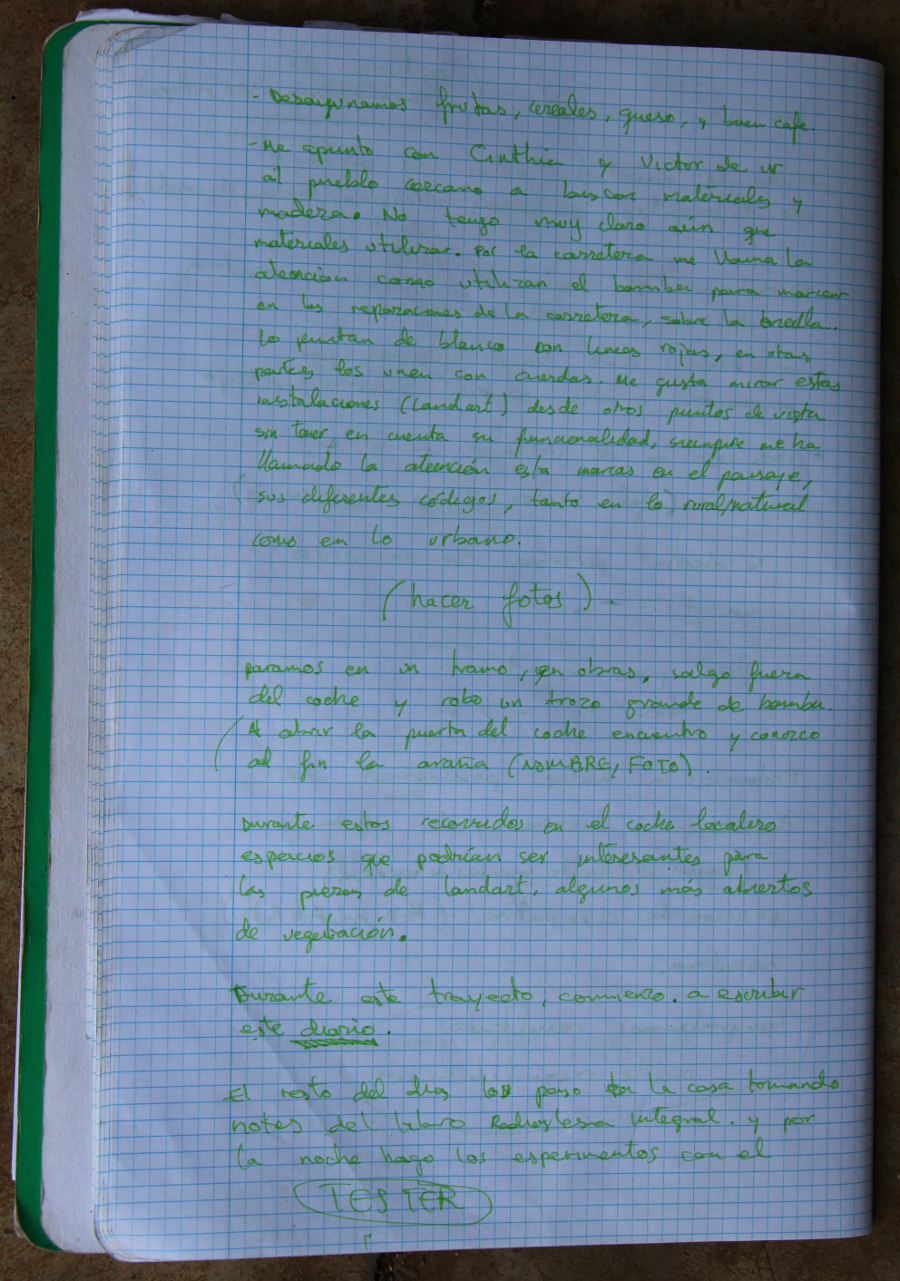 - Desayunamos frutas, cereales, queso, y buen cafe.
- Me apunto con Cinthia y Victor de ir
al pueblo cercano a buscar materiales y
madera. No tengo muy claro aún que
materiales utilizar. Por la carretera me llama la
atención como utilizan el bambu para marcar
en las reparaciones de la carretera, sobre la
Lo pintan de blanco con lineas rojas, en otras
partes los unen con cuerdas. Me gusta mirar estas
instalaciones (Landart) desde otros puntos de vista
sin tener en cuenta su funcionalidad, siempre me ha
llamado la atención esta marcas en el paisaje,
sus diferentes códigos, tanto en lo rural/natural
como en lo urbano.
(hacer fotos).
paramos en un tramo, en obras, salgo fuera
del coche y robo un trozo grande de bambu.
Al abrir la puerta del coche encuentro y conozco
al fin la araña (NOMBRE, FOTO).
Durante estos recorridos en el coche localizo
espacios que podrían ser interesantes para
las piezas de landart, algunos más abiertos
de vegetación.
Durante este trayecto, comienzo. a escribir
este diario.
El resto del dia lo paso en la casa tomando
notas del libro Radiestesia integral. y por
la noche hago los esperimentos con el
TESTER